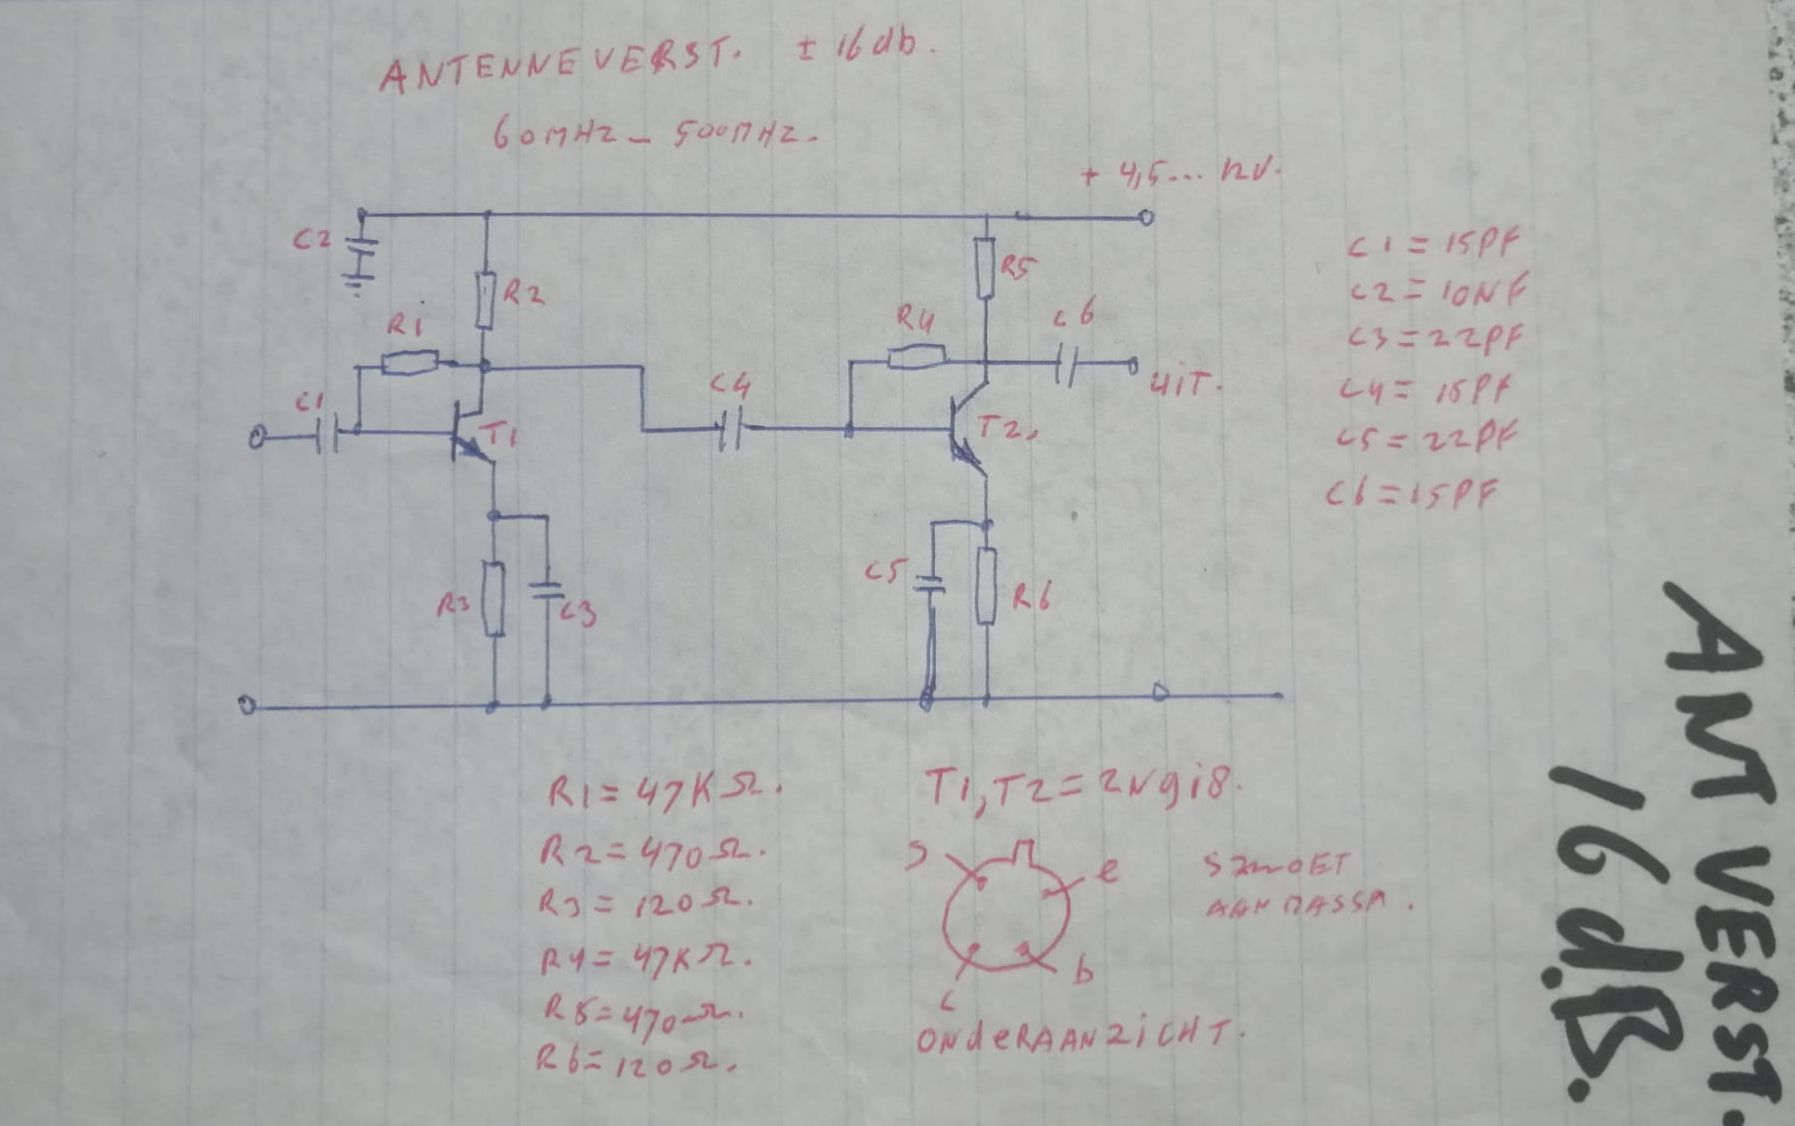 ANTENNEVERST. ± 16db.
60MHZ - 500MHZ.
+ 4,5... 12V.
C2
R2
R5
R1
R4
C6
C1
C4
UiT.
T1
T2.
R3
C3
C5
R6
C1 = 15PF
C2 = 10NF
C3 = 22PF
C4 = 15PF
C5 = 22PF
C6 = 15PF
R1 = 47KΩ.
R2 = 470Ω.
R3 = 120Ω.
R4 = 47KΩ.
R5 = 470Ω.
R6 = 120Ω.
T1, T2 = 2N918.
S
e
c
b
S MOET
AAN MASSA.
ONdERAANZiCHT.
ANT VERST.
16 dB.